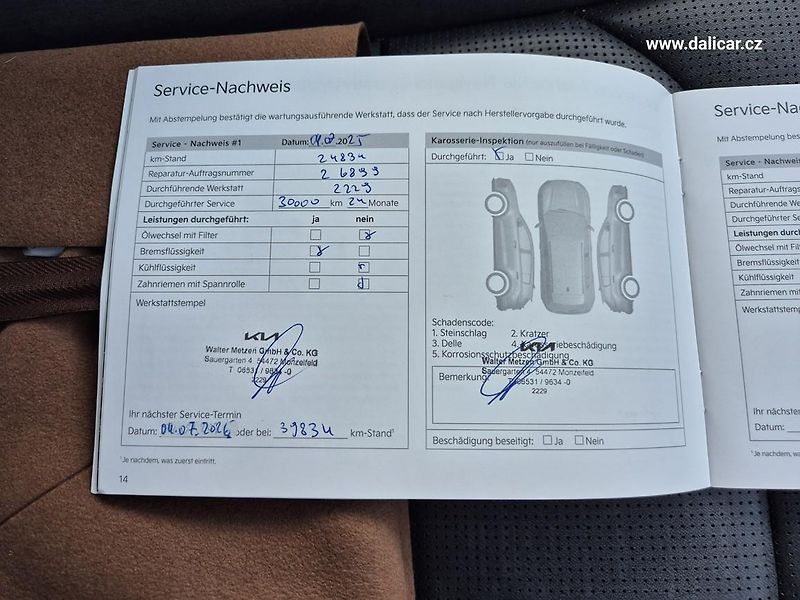 www.dalicar.cz
Service-Nachweis
Mit Abstempelung bestätigt die wartungsausführende Werkstatt, dass der Service nach Herstellervorgabe durchgeführt wurde.
Service - Nachweis #1 Datum: 2025
km-Stand 24834
Reparatur-Auftragsnummer 26899
Durchführende Werkstatt 2229
Durchgeführter Service 30000 km 24 Monate
Leistungen durchgeführt: ja nein
Ölwechsel mit Filter
Bremsflüssigkeit
Kühlflüssigkeit
Zahnriemen mit Spannrolle
Werkstattstempel
KIA
Walter Metzen GmbH & Co. KG
Sauergarten 4 54472 Monzelfeld
T 06531 / 9634 -0
2229
Ihr nächster Service-Termin
Datum: 04.07.2026 oder bei: 39834 km-Stand¹
¹Je nachdem, was zuerst eintritt.
14
Karosserie-Inspektion (nur auszufüllen bei Fälligkeit oder Schaden)
Durchgeführt: Ja Nein
Schadenscode:
1. Steinschlag 2. Kratzer
3. Delle 4. iebeschädigung
5. Korrosionsschutzbeschädigung
KIA
Walter Metzen GmbH & Co. KG
Sauergarten 4 54472 Monzelfeld
Bemerkung: T 06531 / 9634 -0
2229
Beschädigung beseitigt: Ja Nein
Service-Na
Mit Abstempelung bes
Service - Nachweis
km-Stand
Reparatur-Auftrags
Durchführende We
Durchgeführter Se
Leistungen durc
Ölwechsel mit F
Bremsflüssigke
Kühlflüssigkei
Zahnriemen m
Werkstattste
Ihr nächste
Datum:
¹Je nachdem, wa